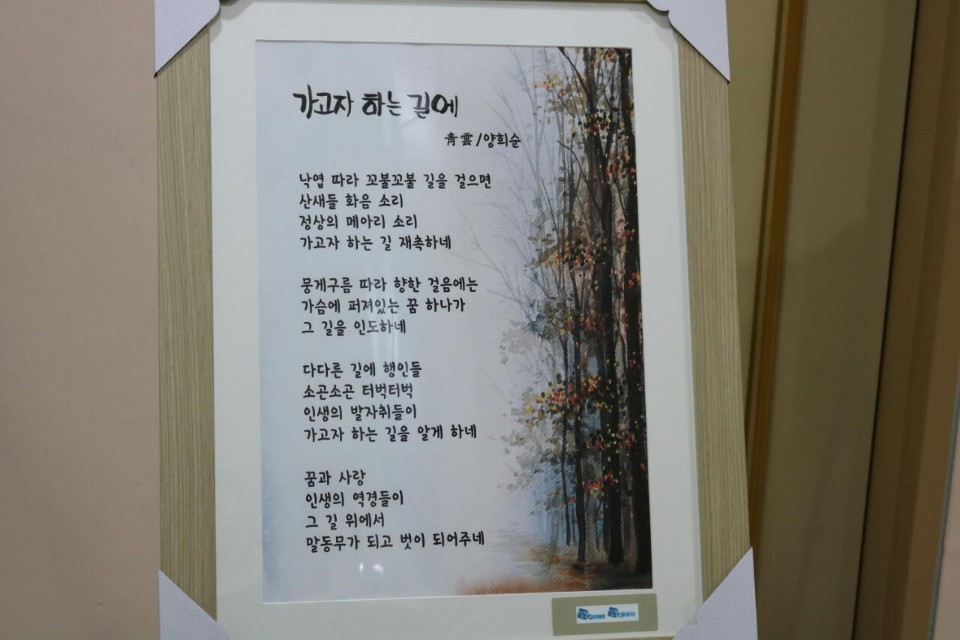 가고자 하는 길에
靑雲/양희순
낙엽 따라 꼬불꼬불 길을 걸으면
산새들 화음 소리
정상의 메아리 소리
가고자 하는 길 재촉하네
뭉게구름 따라 향한 걸음에는
가슴에 퍼져있는 꿈 하나가
그 길을 인도하네
다다른 길에 행인들
소곤소곤 터벅터벅
인생의 발자취들이
가고자 하는 길을 알게 하네
꿈과 사랑
인생의 역경들이
그 길 위에서
말동무가 되고 벗이 되어주네